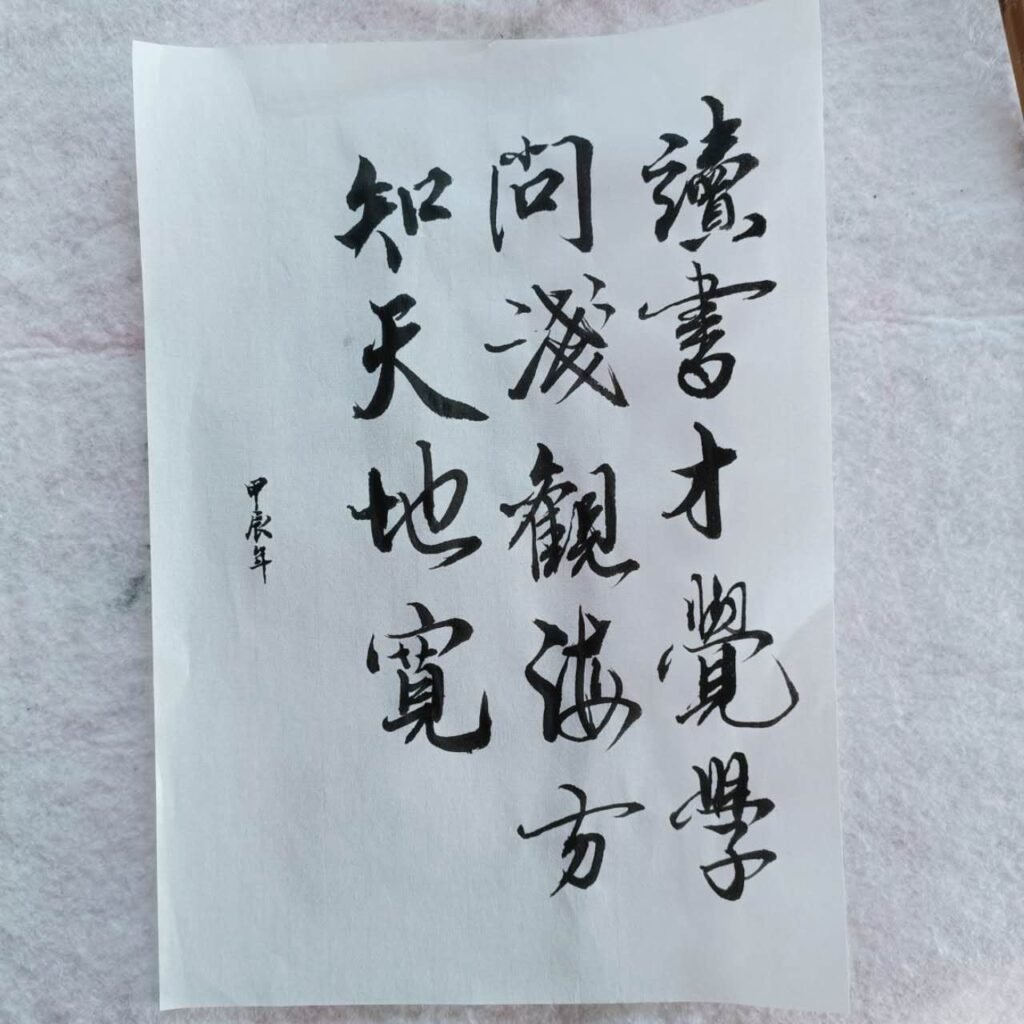 讀書才覺學
問淺觀海方
知天地寬
甲辰年